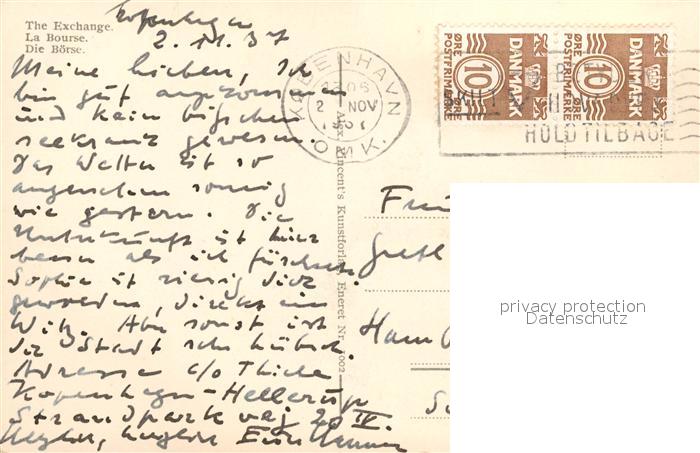 The Exchange.
La Bourse.
Die Börse.
Kopenhagen
2. 11. 37
Meine Lieben, Ich
bin gut angekommen
und kein bißchen
seekrank gewesen.
Das Wetter ist so
angenehm sonnig
wie gestern. Die
Unterkunft ist hier
besser als ich fürchtete.
Sophie ist riesig dick
geworden, direkt ein
Witz. Aber sonst ist
die Stadt sehr hübsch.
Adresse c/o Thiele
Kopenhagen-Hellerup
Strandpark vej 20 IV.
KØBENHAVN
2 NOV
OMK.
POSTFRIMÆRKE
10
ØRE
DANMARK
POSTFRIMÆRKE
10
ØRE
DANMARK
HOLD TILBAGE
Alex. Vincent's Kunstforlag, Eneret Nr. 1002
Gretl
privacy protection
Datenschutz